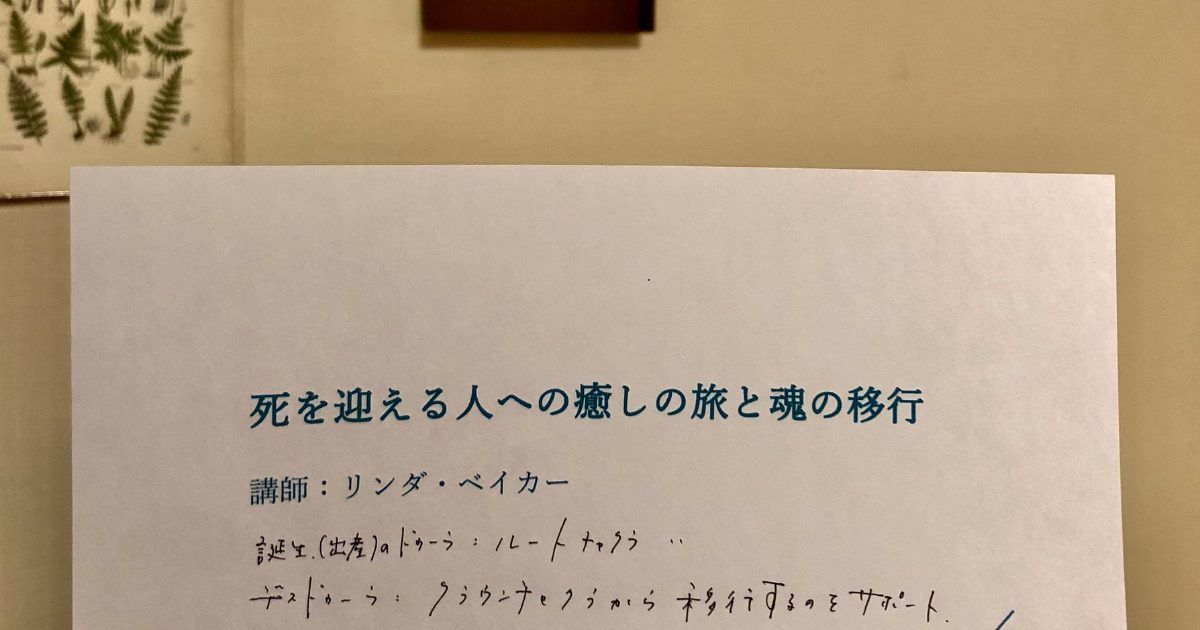 死を迎える人への癒しの旅と魂の移行
講師：リンダ・ベイカー
誕生.(出産)のドゥーラ：ルートチャクラ
デスドゥーラ：クラウンチャクラから移行するのをサポート.